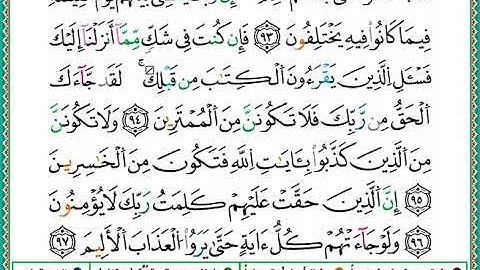 فِيمَا كَانُوا۟ فِيهِ يَخْتَلِفُونَ ﴿٩٣﴾ فَإِن كُنتَ فِى شَكٍّ مِّمَّآ أَنزَلْنَآ إِلَيْكَ
فَسْـَٔلِ ٱلَّذِينَ يَقْرَءُونَ ٱلْكِتَـٰبَ مِن قَبْلِكَ ۚ لَقَدْ جَآءَكَ
ٱلْحَقُّ مِن رَّبِّكَ فَلَا تَكُونَنَّ مِنَ ٱلْمُمْتَرِينَ ﴿٩٤﴾ وَلَا تَكُونَنَّ
مِنَ ٱلَّذِينَ كَذَّبُوا۟ بِـَٔايَـٰتِ ٱللَّهِ فَتَكُونَ مِنَ ٱلْخَـٰسِرِينَ
﴿٩٥﴾ إِنَّ ٱلَّذِينَ حَقَّتْ عَلَيْهِمْ كَلِمَتُ رَبِّكَ لَا يُؤْمِنُونَ
﴿٩٦﴾ وَلَوْ جَآءَتْهُمْ كُلُّ ءَايَةٍ حَتَّىٰ يَرَوُا۟ ٱلْعَذَابَ ٱلْأَلِيمَ ﴿٩٧﴾